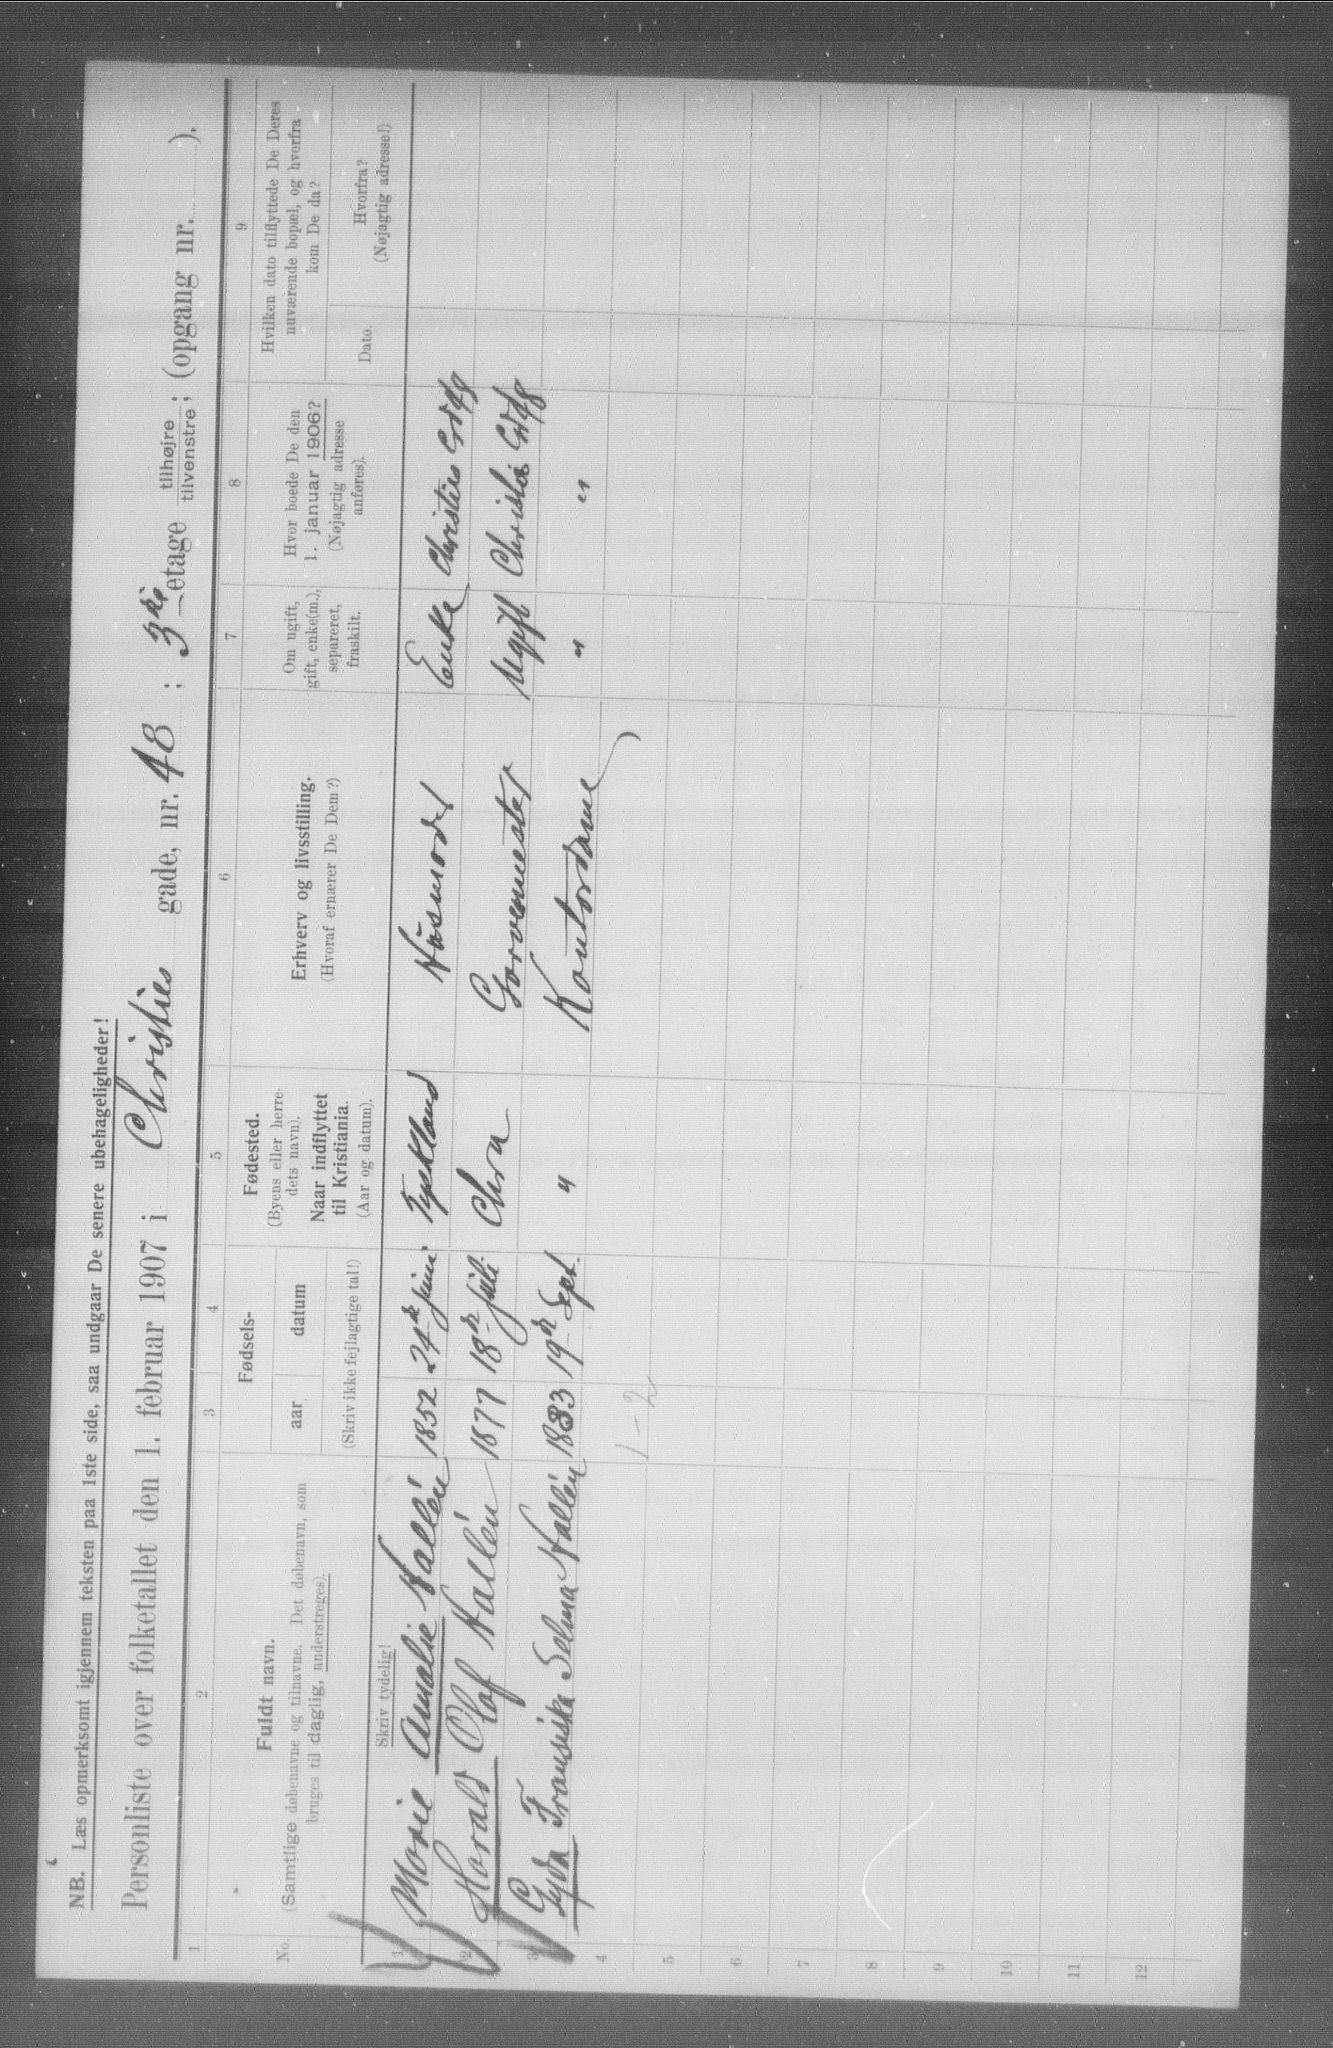 NB. Læs opmerksomt igjennem teksten paa 1ste side, saa undgaar De senere ubehageligheder!
Personliste over folketallet den 1. februar 1907 i Christies gade, nr. 48 ; 3die etage tilhøjre tilvenstre ; (opgang nr. ).
1 2 3 4 5 6 7 8 9
No.
Fuldt navn.
(Samtlige døbenavne og tilnavne. Det døbenavn, som
bruges til daglig, understreges).
Fødsels-
aar datum
(Skriv ikke fejlagtige tal!)
Fødested.
(Byens eller herre-
dets navn).
Naar indflyttet
til Kristiania.
(Aar og datum).
Erhverv og livsstilling.
(Hvoraf ernærer De Dem?)
Om ugift,
gift, enke(m.),
separeret,
fraskilt.
Hvor boede De den
1. januar 1906?
(Nøjagtig adresse
anføres).
Hvilken dato tilflyttede De Deres
nuværende bopæl, og hvorfra
kom De da?
Dato.
Hvorfra?
(Nøjagtig adresse!)
Skriv tydelig!
1 Marie Amalie Hallén 1852 24de juni Tyskland Husmoder Enke Christies Gd 48
2 Harald Olaf Hallén 1877 18de juli Chra Garvemester Ugift Christies Gd 48
3 Gyda Fransiska Selma Hallén 1883 19de Sept. " Kontordame " "
4 1 - 2
5
6
7
8
9
10
11
12